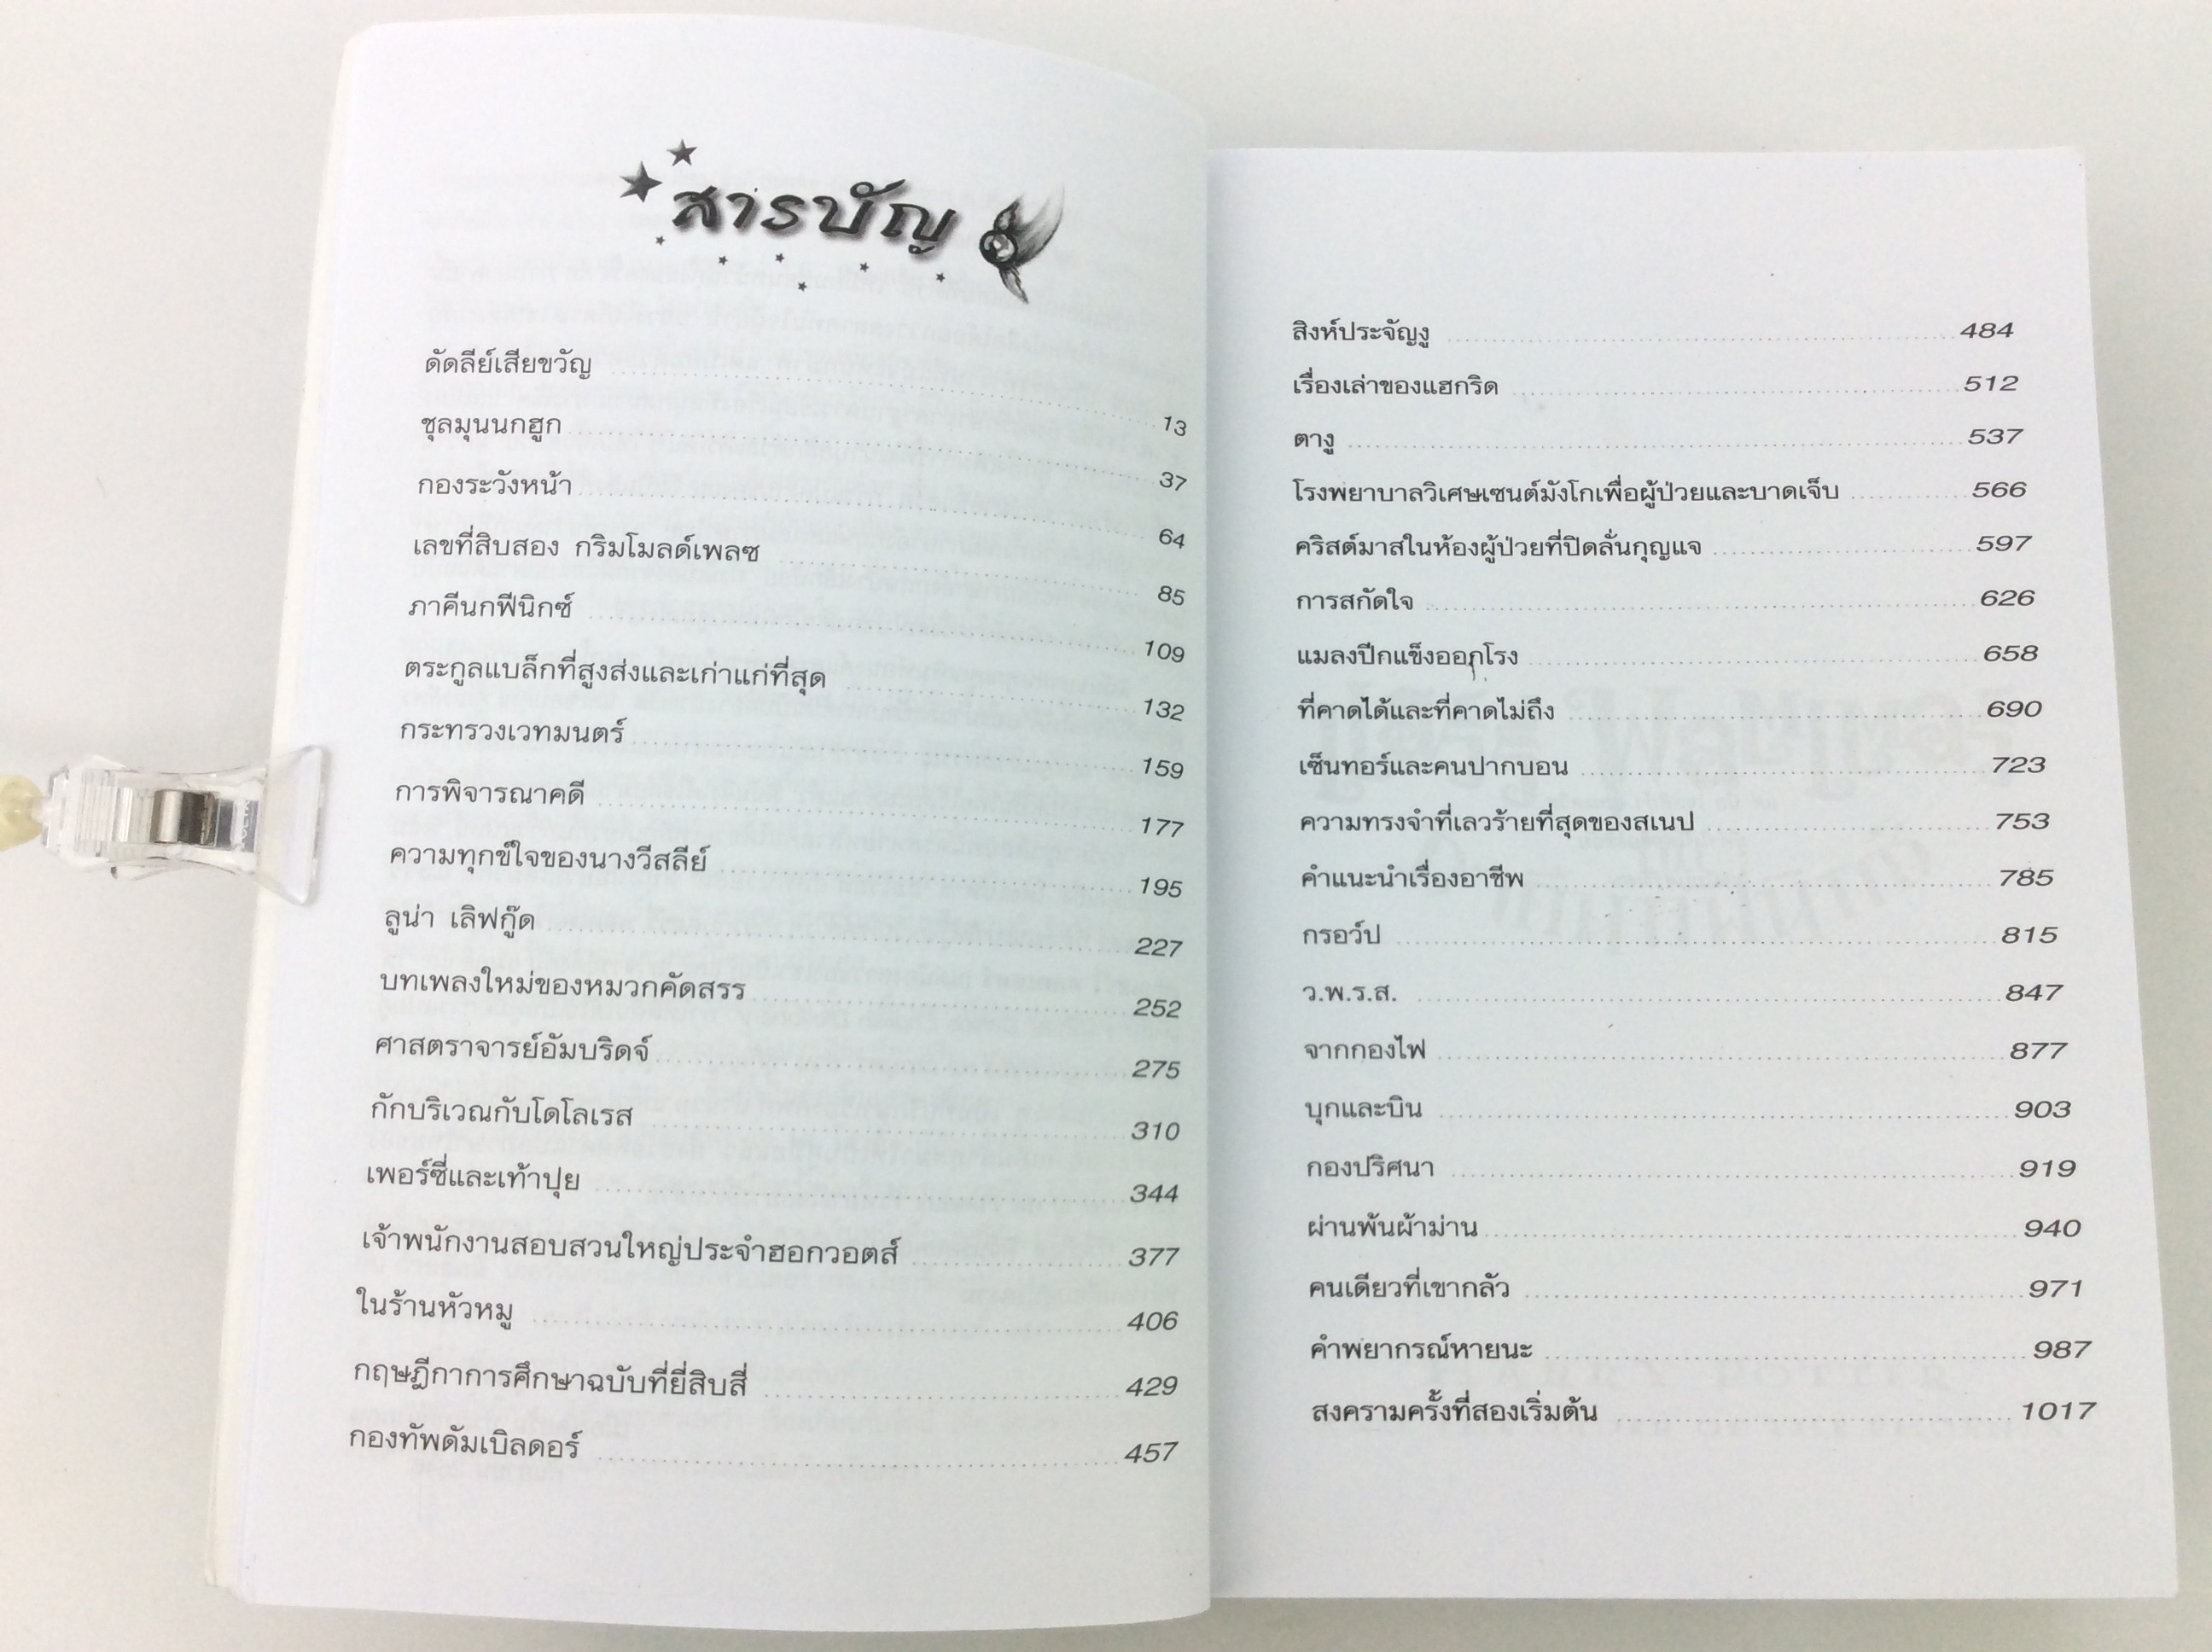 สารบัญ
ดัดลีย์เสียขวัญ 13
ชุลมุนนกฮูก 37
กองระวังหน้า 64
เลขที่สิบสอง กริมโมลด์เพลซ 85
ภาคีนกฟีนิกซ์ 109
ตระกูลแบล็กที่สูงส่งและเก่าแก่ที่สุด 132
กระทรวงเวทมนตร์ 159
การพิจารณาคดี 177
ความทุกข์ใจของนางวีสลีย์ 195
ลูน่า เลิฟกู๊ด 227
บทเพลงใหม่ของหมวกคัดสรร 252
ศาสตราจารย์อัมบริดจ์ 275
กักบริเวณกับโดโลเรส 310
เพอร์ซี่และเท้าปุย 344
เจ้าพนักงานสอบสวนใหญ่ประจำฮอกวอตส์ 377
ในร้านหัวหมู 406
กฤษฎีกาการศึกษาฉบับที่ยี่สิบสี่ 429
กองทัพดัมเบิลดอร์ 457
สิงห์ประจัญงู 484
เรื่องเล่าของแฮกริด 512
ตางู 537
โรงพยาบาลวิเศษเซนต์มังโกเพื่อผู้ป่วยและบาดเจ็บ 566
คริสต์มาสในห้องผู้ป่วยที่ปิดลั่นกุญแจ 597
การสกัดใจ 626
แมลงปีกแข็งออกโรง 658
ที่คาดได้และที่คาดไม่ถึง 690
เซ็นทอร์และคนปากบอน 723
ความทรงจำที่เลวร้ายที่สุดของสเนป 753
คำแนะนำเรื่องอาชีพ 785
กรอว์ป 815
ว.พ.ร.ส. 847
จากกองไฟ 877
บุกและบิน 903
กองปริศนา 919
ผ่านพ้นผ้าม่าน 940
คนเดียวที่เขากลัว 971
คำพยากรณ์หายนะ 987
สงครามครั้งที่สองเริ่มต้น 1017